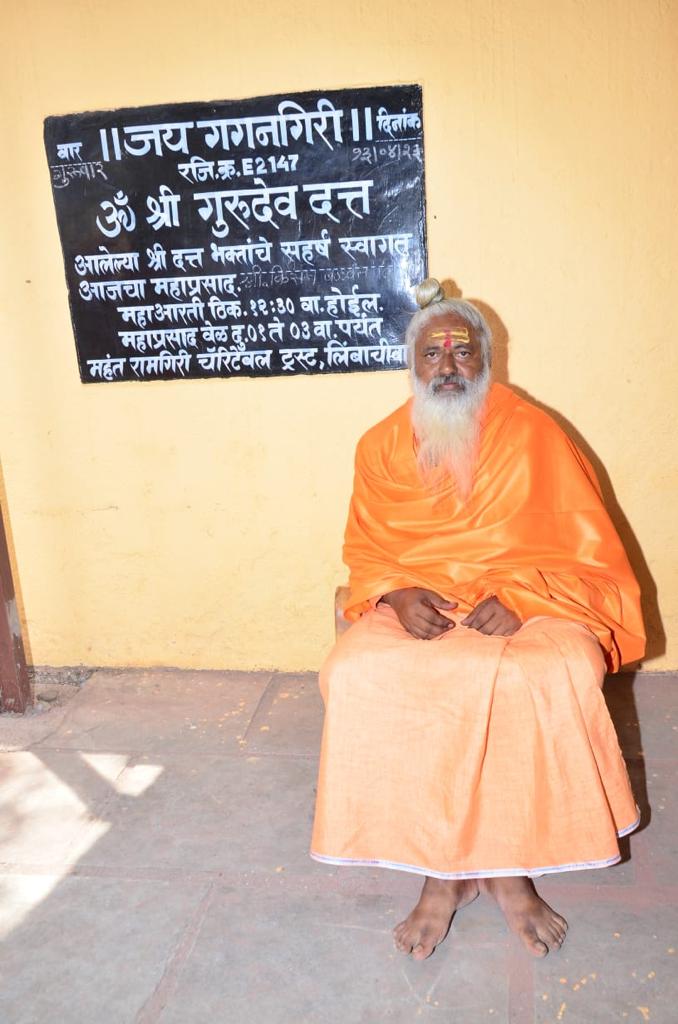 वार ||जय गगनगिरी|| दिनांक
गुरूवार रजि.क्र.E2147 १३/०४/२३
ॐ श्री गुरुदेव दत्त
आलेल्या श्री दत्त भक्तांचे सहर्ष स्वागत
आजचा महाप्रसाद.
महाआरती ठिक. १२:३० वा.होईल.
महाप्रसाद वेळ दु.०१ ते ०३ वा. पर्यंत
महंत रामगिरी चॅरिटेबल ट्रस्ट,